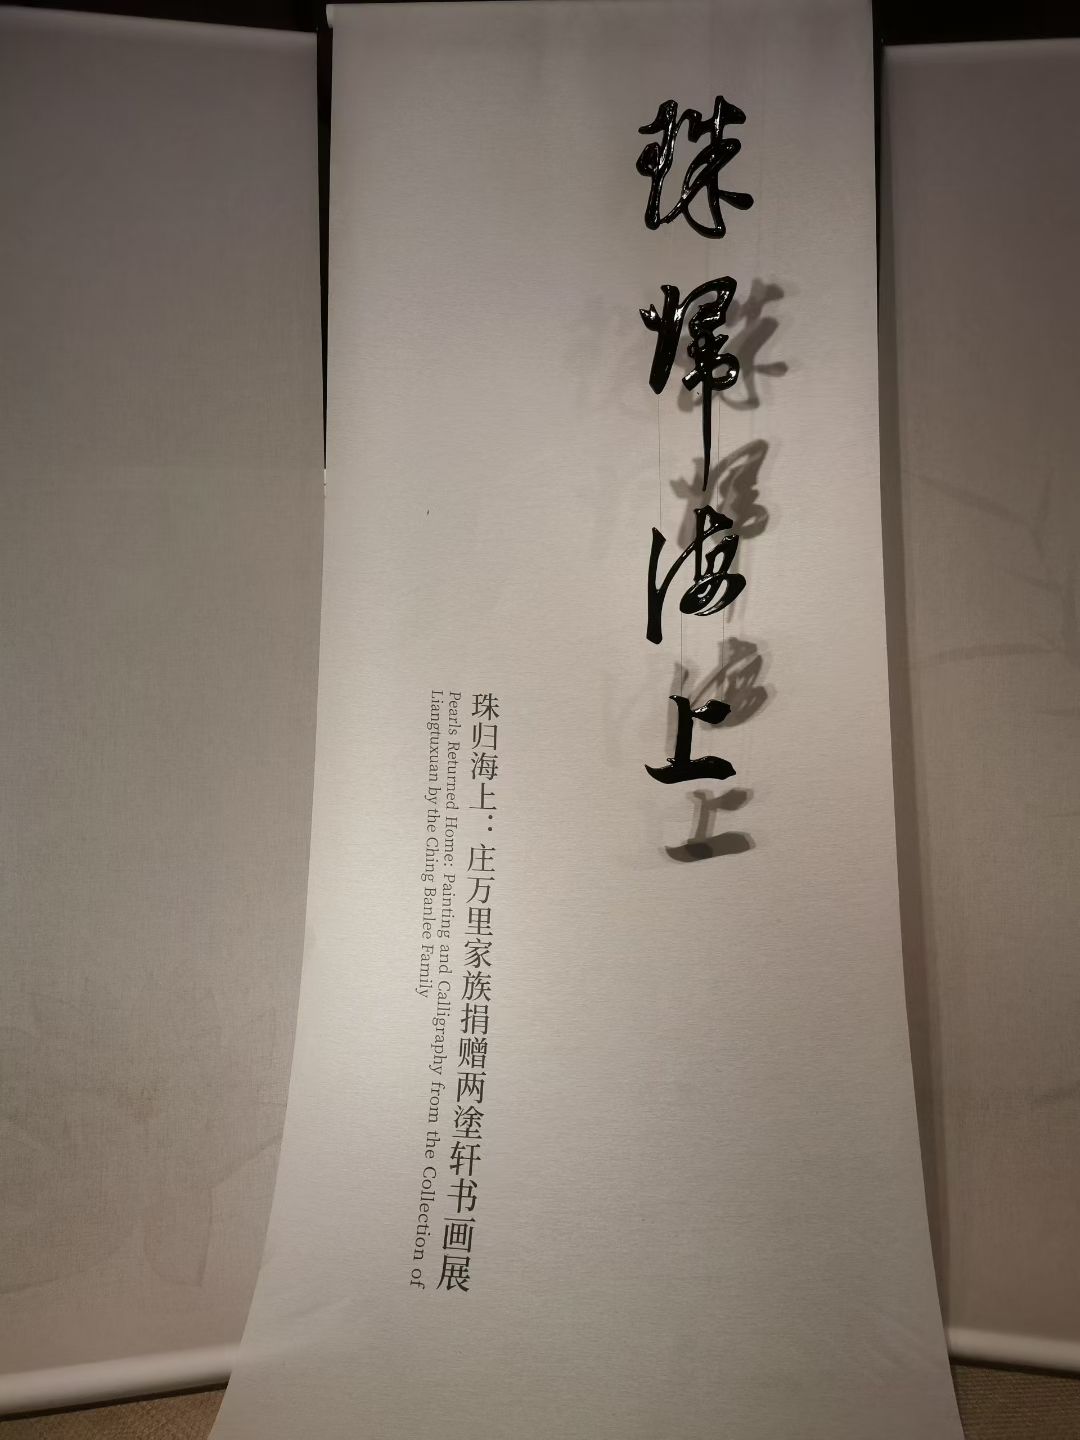 珠帰海上
珠归海上：庄万里家族捐赠两塗轩书画展
Pearls Returned Home: Painting and Calligraphy from the Collection of
Liangtuxuan by the Ching Banlee Family